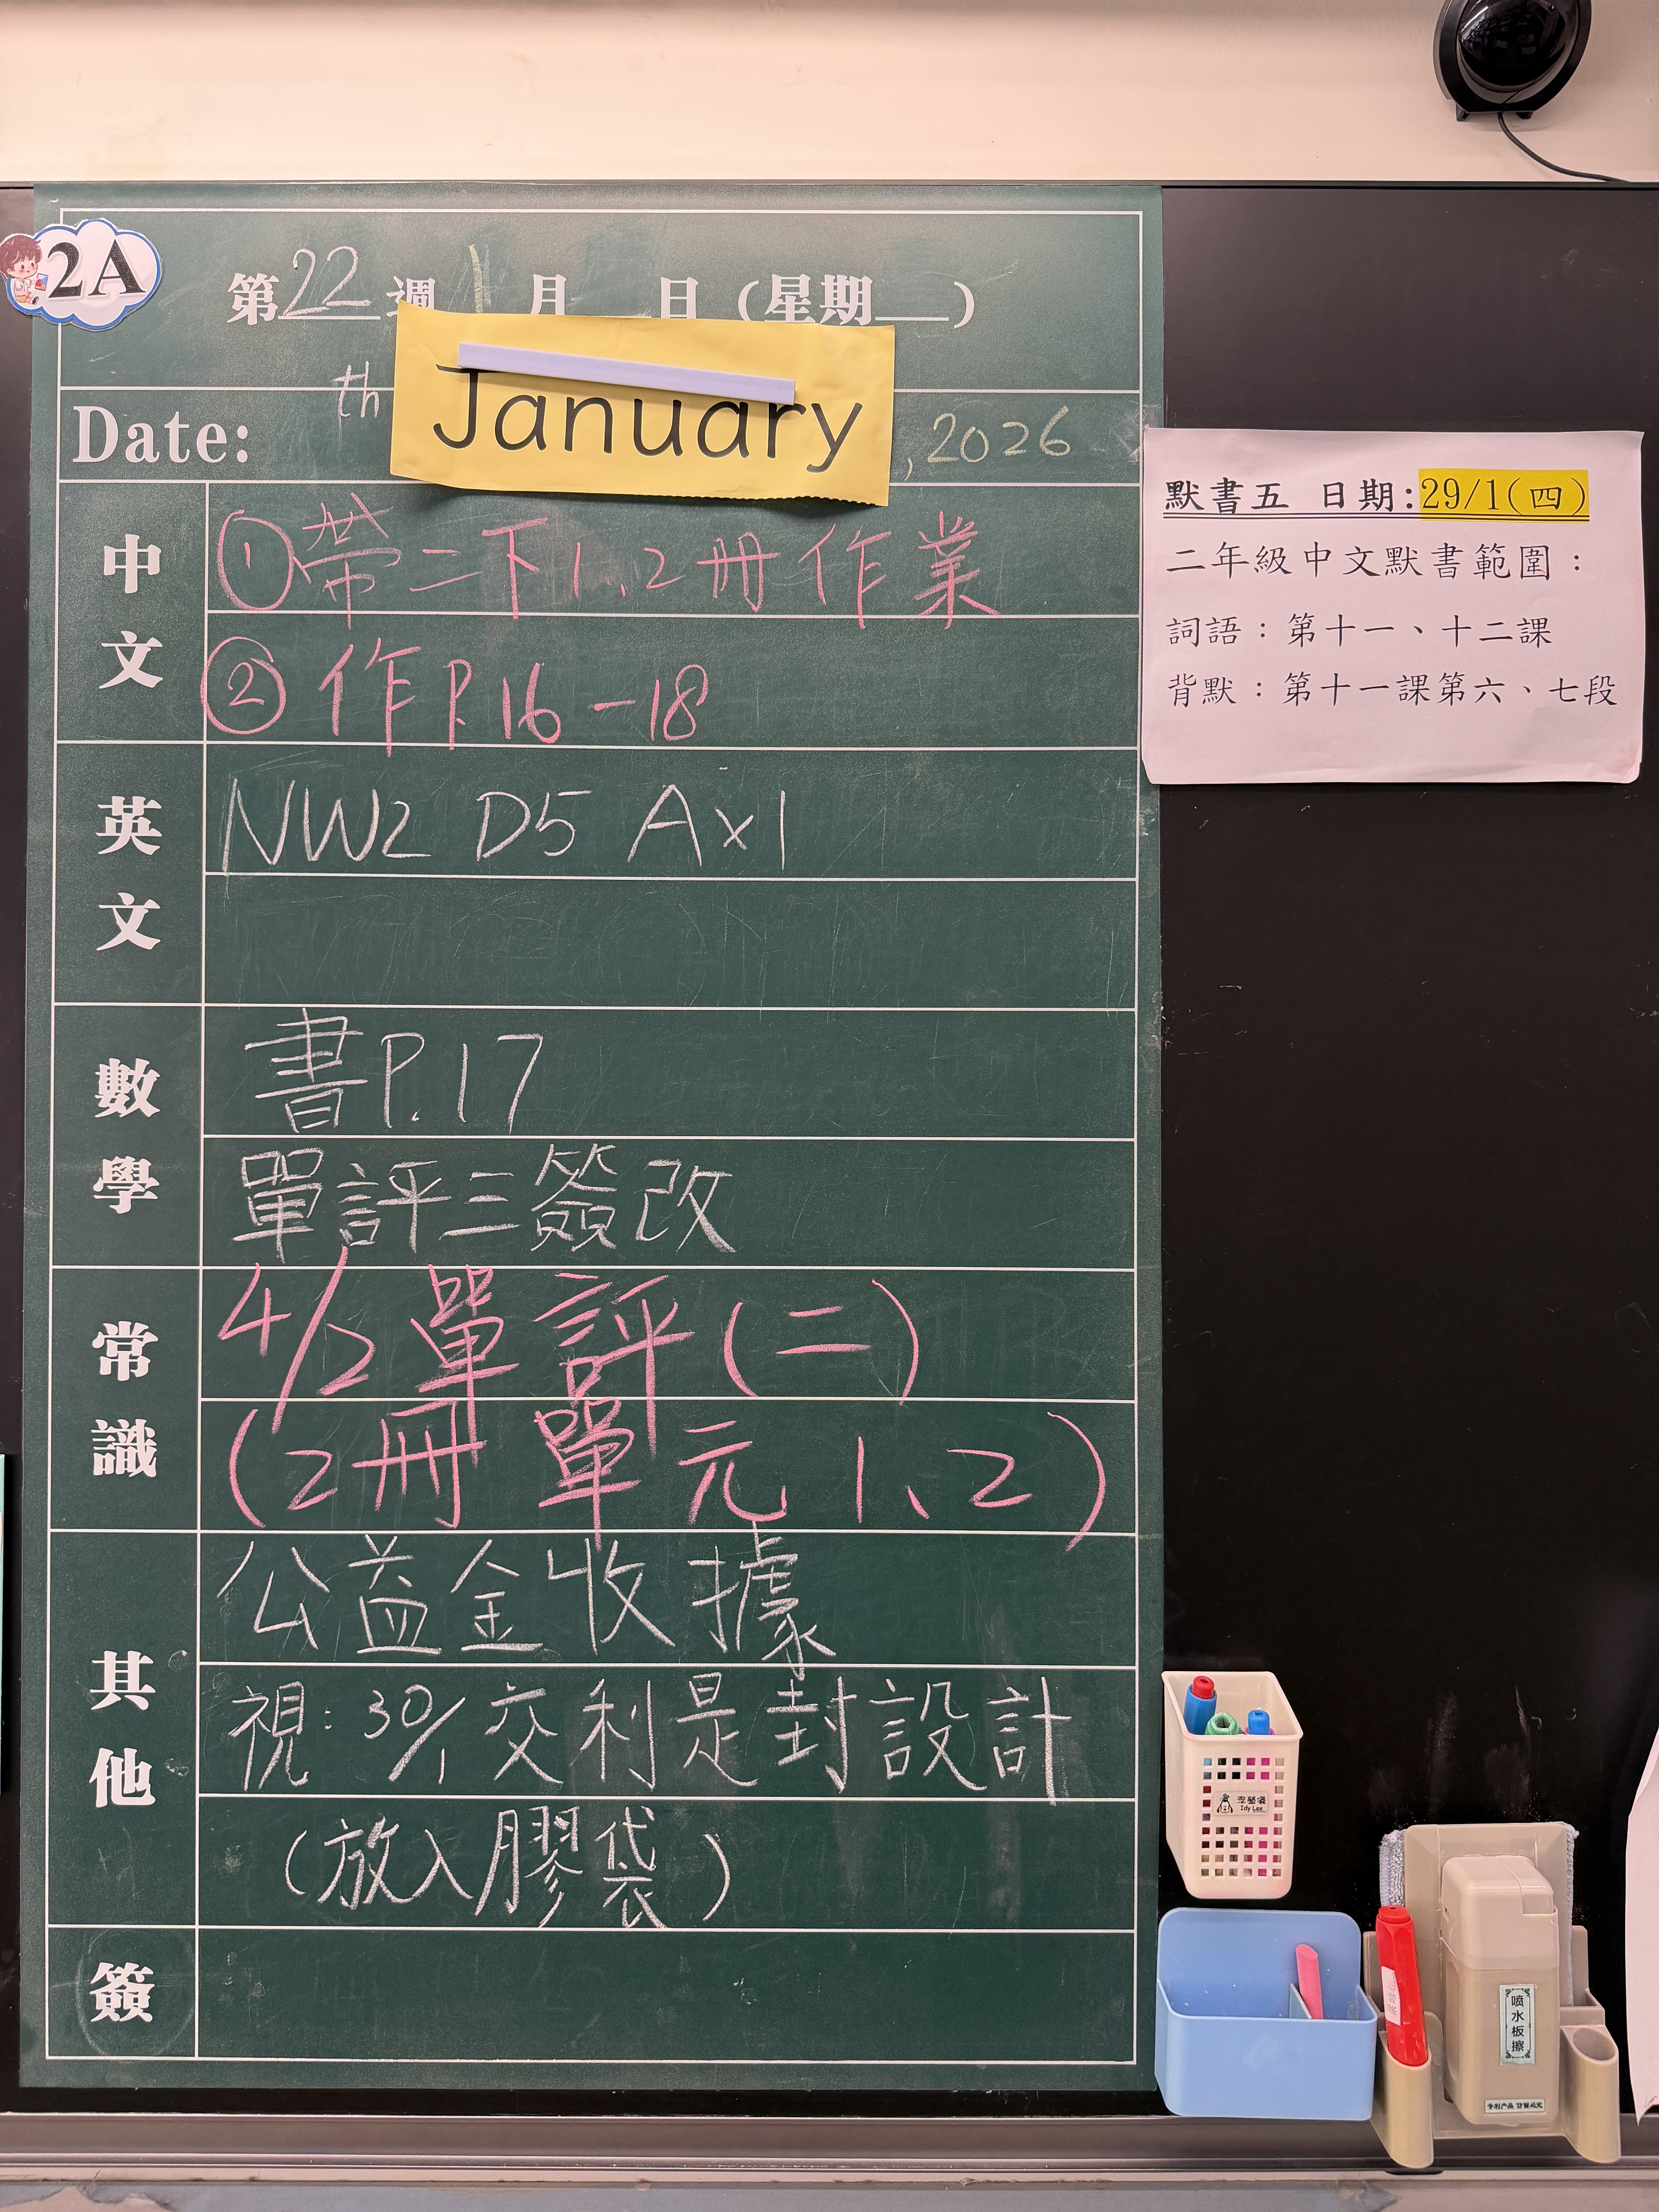 2A
第22週 1月 日 (星期 )
Date: th January, 2026
中文
①帶二下1、2冊作業
②作P.16-18
英文
NW2 D5 A×1
數學
書P.17
單評三簽改
常識
4/2 單評(二)
(2冊 單元 1、2)
其他
公益金收據
視:30/1 交利是封設計
(放入膠袋)
簽
默書五 日期:29/1(四)
二年級中文默書範圍:
詞語:第十一、十二課
背默:第十一課第六、七段
Idy Lee
喷水板擦